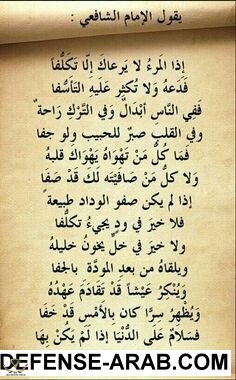 يقول الإمام الشافعي :
إذا المَرءُ لا يَرعاكَ إلّا تكَلُّفاً
فَدَعهُ ولا تُكثِر عَلَيهِ التَأسُّفا
ففي النَّاس أبْدَالٌ وفي التَّرْكِ رَاحة ٌ
وفي القلبِ صبرٌ للحبيب ولو جفا
فمَا كُلُّ مَنْ تَهْوَاهُ يَهْوَاكَ قلبهُ
وَلا كلُّ مَنْ صَافيْتَه لَكَ قَدْ صَفَا
إذا لم يكن صفو الوداد طبيعةً
فلا خيرَ في ودٍ يجيءُ تكلُّفا
ولا خيرَ في خلٍّ يخونُ خليلهُ
ويلقاهُ من بعدِ المودَّةِ بالجفا
وَيُنْكِرُ عَيْشاً قَدْ تَقَادَمَ عَهْدُهُ
وَيُظْهِرُ سِرًّا كان بِالأَمْسِ قَدْ خَفَا
فسَلامٌ عَلَى الدُّنْيَا إذا لَمْ يَكُنْ بِهَا
DEFENSE-ARAB.COM